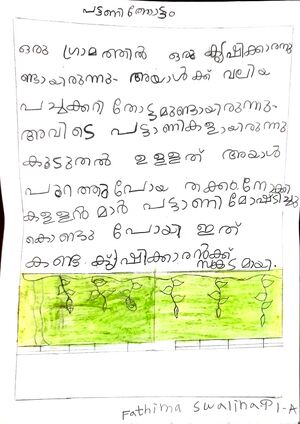 പട്ടാണി തോട്ടം
ഒരു ഗ്രാമത്തിൽ ഒരു കൃഷിക്കാരനു
ണ്ടായിരുന്നു- അയാൾക്ക് വലിയ
പച്ചക്കറി തോട്ടമുണ്ടായിരുന്നു-
അവിടെ പട്ടാണികളായിരുന്നു
കൂടുതൽ ഉള്ളത് അയാൾ
പുറത്തുപോയ തക്കംനോക്കി
കള്ളൻമാർ പട്ടാണി മോഷ്ടിച്ചു
കൊണ്ടു പോയി ഇത്
കണ്ട കൃഷിക്കാരൻക്ക്
സങ്കടമായി.
Fathima Swaliha P 1-A